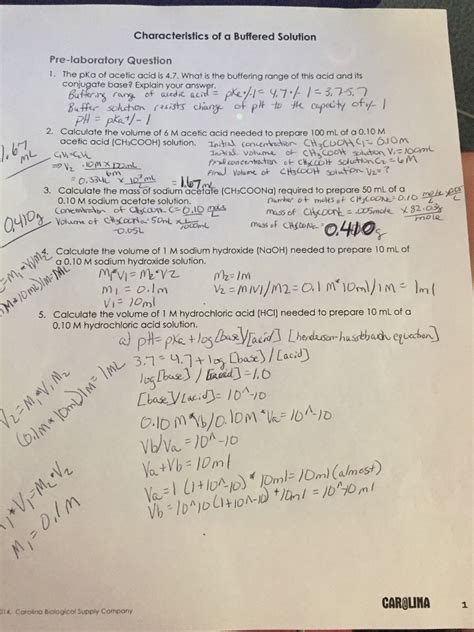 Characteristics of a Buffered Solution
Pre-laboratory Question
1. The pKa of acetic acid is 4.7. What is the buffering range of this acid and its
conjugate base? Explain your answer.
Buffering range of acetic acid = pKa +/- 1 = 4.7 +/- 1 = 3.7-5.7
Buffer solution resists change of pH to the capacity of +/- 1
pH = pKa +/- 1
2. Calculate the volume of 6 M acetic acid needed to prepare 100 mL of a 0.10
M acetic acid (CH3COOH) solution.
Initial concentration CH3COOH C1 = 0.10M
Initial volume of CH3COOH solution V1 = 100mL
Final concentration of CH3COOH solution C2 = 6M
Final volume of CH3COOH solution V2 = ?
1.67 mL
1.67 mL
3. Calculate the mass of sodium acetate (CH3COONa) required to prepare 50 mL of a
0.10 M sodium acetate solution.
Concentration of CH3COONa C = 0.10 mols
Volume of CH3COONa 50mL x 1/1000mL
= 0.05L
mass of CH3COONa = .005mole x 82.03g/mole
mass of CH3COONa 0.410g
0.410g
4. Calculate the volume of 1 M sodium hydroxide (NaOH) needed to prepare 10 mL of
a 0.10 M sodium hydroxide solution.
M1*V1 = M2*V2 M2 = 1M
M1 = 0.1M V2 = M1V1/M2 = 0.1M*10ml/1M = 1ml
V1 = 10ml
5. Calculate the volume of 1 M hydrochloric acid (HCl) needed to prepare 10 mL of a
0.10 M hydrochloric acid solution.
a) pH = pKa + log[base]/[acid]
3.7 = 4.7 + log [base]/[acid]
log[base]/[acid] = 1.0
[base]/[acid] = 10^-10
0.10 M*Vb/0.10M*Va = 10^-10
Vb/Va = 10^-10
Va + Vb = 10ml
Va = 1 (1+10^-10) * 10ml = 10ml (almost)
Vb = 10^10 (1+10^-10) * 10ml = 10^-10ml
V2 = M1*V1 M2
(0.1M*10ml)/1M = 1mL
M1*V1 = M2*V2
M1 = 0.1M
014. Carolina Biological Supply Company
CAROLINA
1